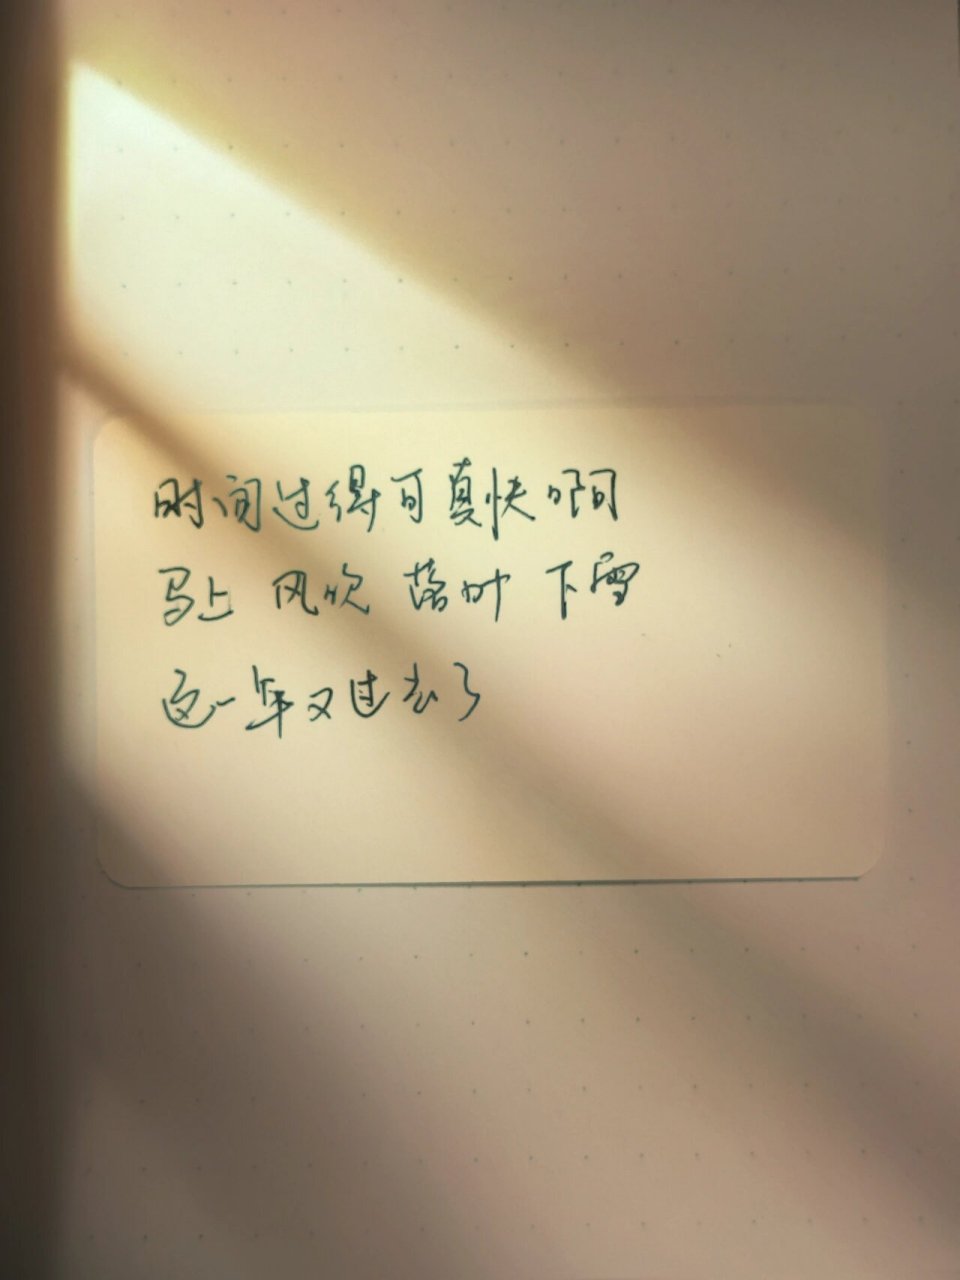 时间过得可真快啊
马上 风吹 落叶 下雪
这一年又过去了